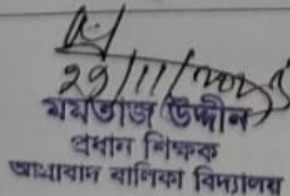 29/11/2025
মমতাজ উদ্দীন
প্রধান শিক্ষক
বালিকা বিদ্যালয়